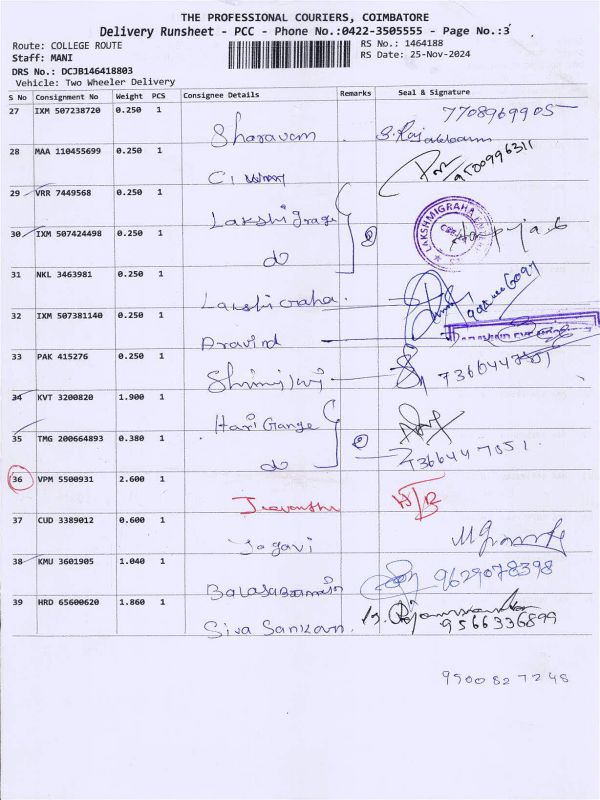 THE PROFESSIONAL COURIERS, COIMBATORE
Delivery Runsheet - PCC - Phone No.:0422-3505555 - Page No.:3
Route: COLLEGE ROUTE
RS No.: 1464188
Staff: MANI
RS Date: 25-Nov-2024
DRS No.: DCJB146418803
Vehicle: Two Wheeler Delivery
S No Consignment No Weight PCS Consignee Details Remarks Seal & Signature
27 IXM 507238720 0.250 1 Sharavam 7708969905
28 MAA 110455699 0.250 1 9500996311
29 VRR 7449568 0.250 1
30 IXM 507424498 0.250 1 do
31 NKL 3463981 0.250 1 Lakshigraha.
32 IXM 507381140 0.250 1 Aravind
33 PAK 415276 0.250 1
34 KVT 3200820 1.900 1 Hari Gange
35 TMG 200664893 0.380 1 do 7366447051.
36 VPM 5500931 2.600 1
37 CUD 3389012 0.600 1 Jagavi
38 KMU 3601905 1.040 1 9629078398
39 HRD 65600620 1.860 1 Siva Sankar. 9566336899
9500827248